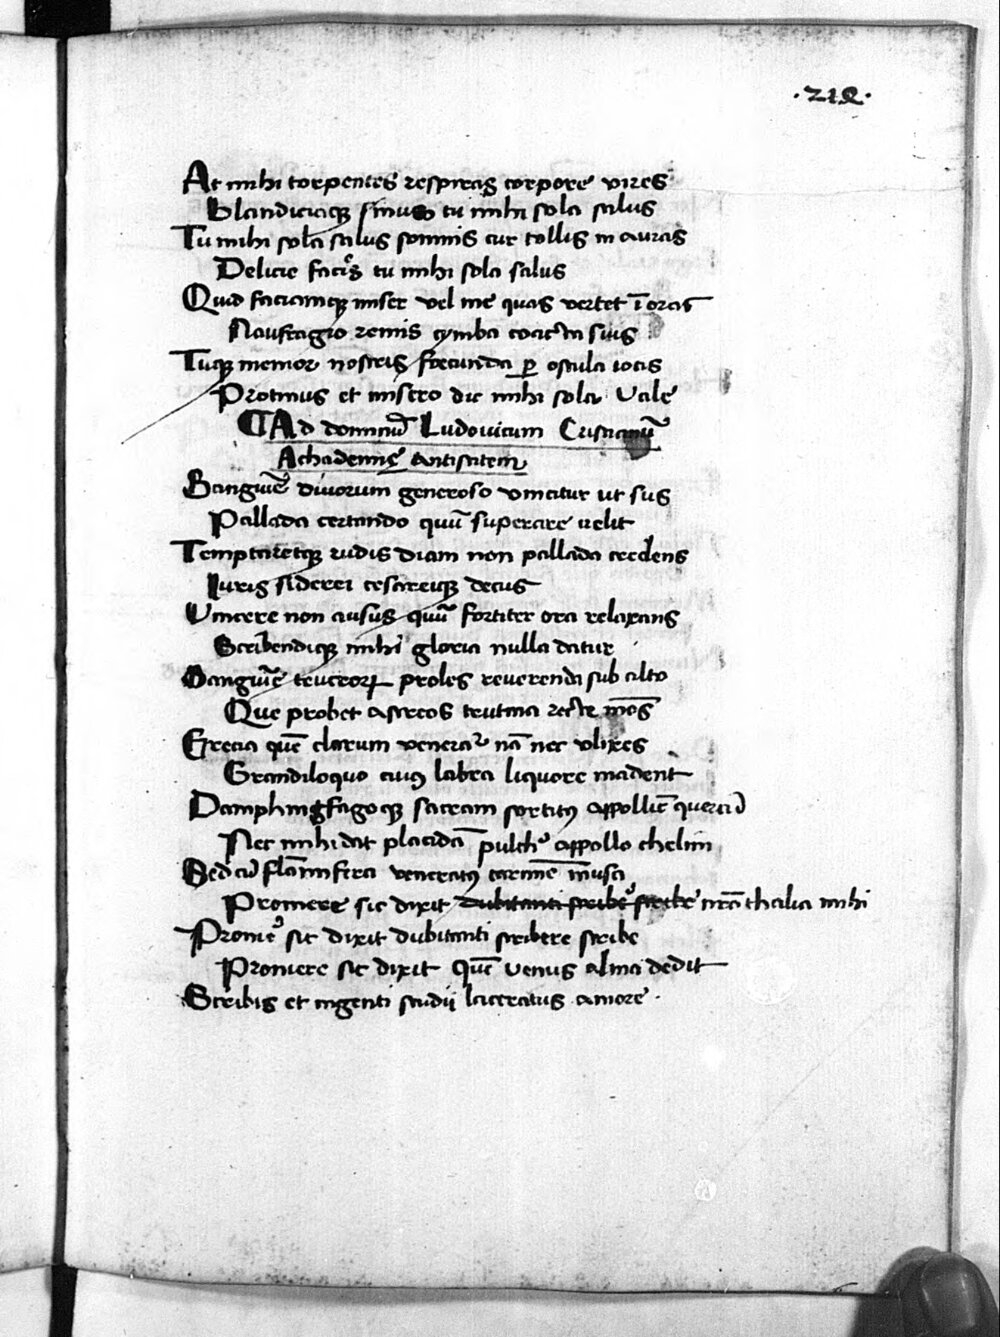 ·212·
At mihi torpentes respiras corpore vires
Blandiciisq sinuo tu mihi sola salus
Tu mihi sola salus somnis cur tollis in auras
Delicie facis tu mihi sola salus
Quid faciamq miser vel me quas vertet ī oras
Naufragio remis cymba coacta suis
Tuq memor nostris foecunda p oscula iocis
Protinus et misero dic mihi sola Vale
Ad dominū Ludovicum Cristianū
Achademie Antistitem
Sanguīe divorum generoso vincitur ut sus
Pallada certando quū superare velit
Temptaretq rudis diam non pallada credens
Iuris siderei cesareuq decus
Vincere non ausus quū fortiter ora relaxans
Scribendiq mihi gloria nulla datur
Sanguīe teucrorꝝ proles reverenda sub alto
Que probet astreos trutina recte mōs
Grecia quē clarum venerat nā nec vlixes
Grandiloquo cuiꝰ labra liquore madent
sacram sortitꝰ appollīe
Nec mihi dat placidā pulcher appollo chelim
Sed cū flāmifera veneratꝰ carmīe musa
Promere sic dixit dubitanti scribere scribe nrā thalia mihi
Promere sic dixit dubitanti scribere scribe
Promere sic dixit quē venus alma dedit
Scribis et ingenti studii laceratus amore ·